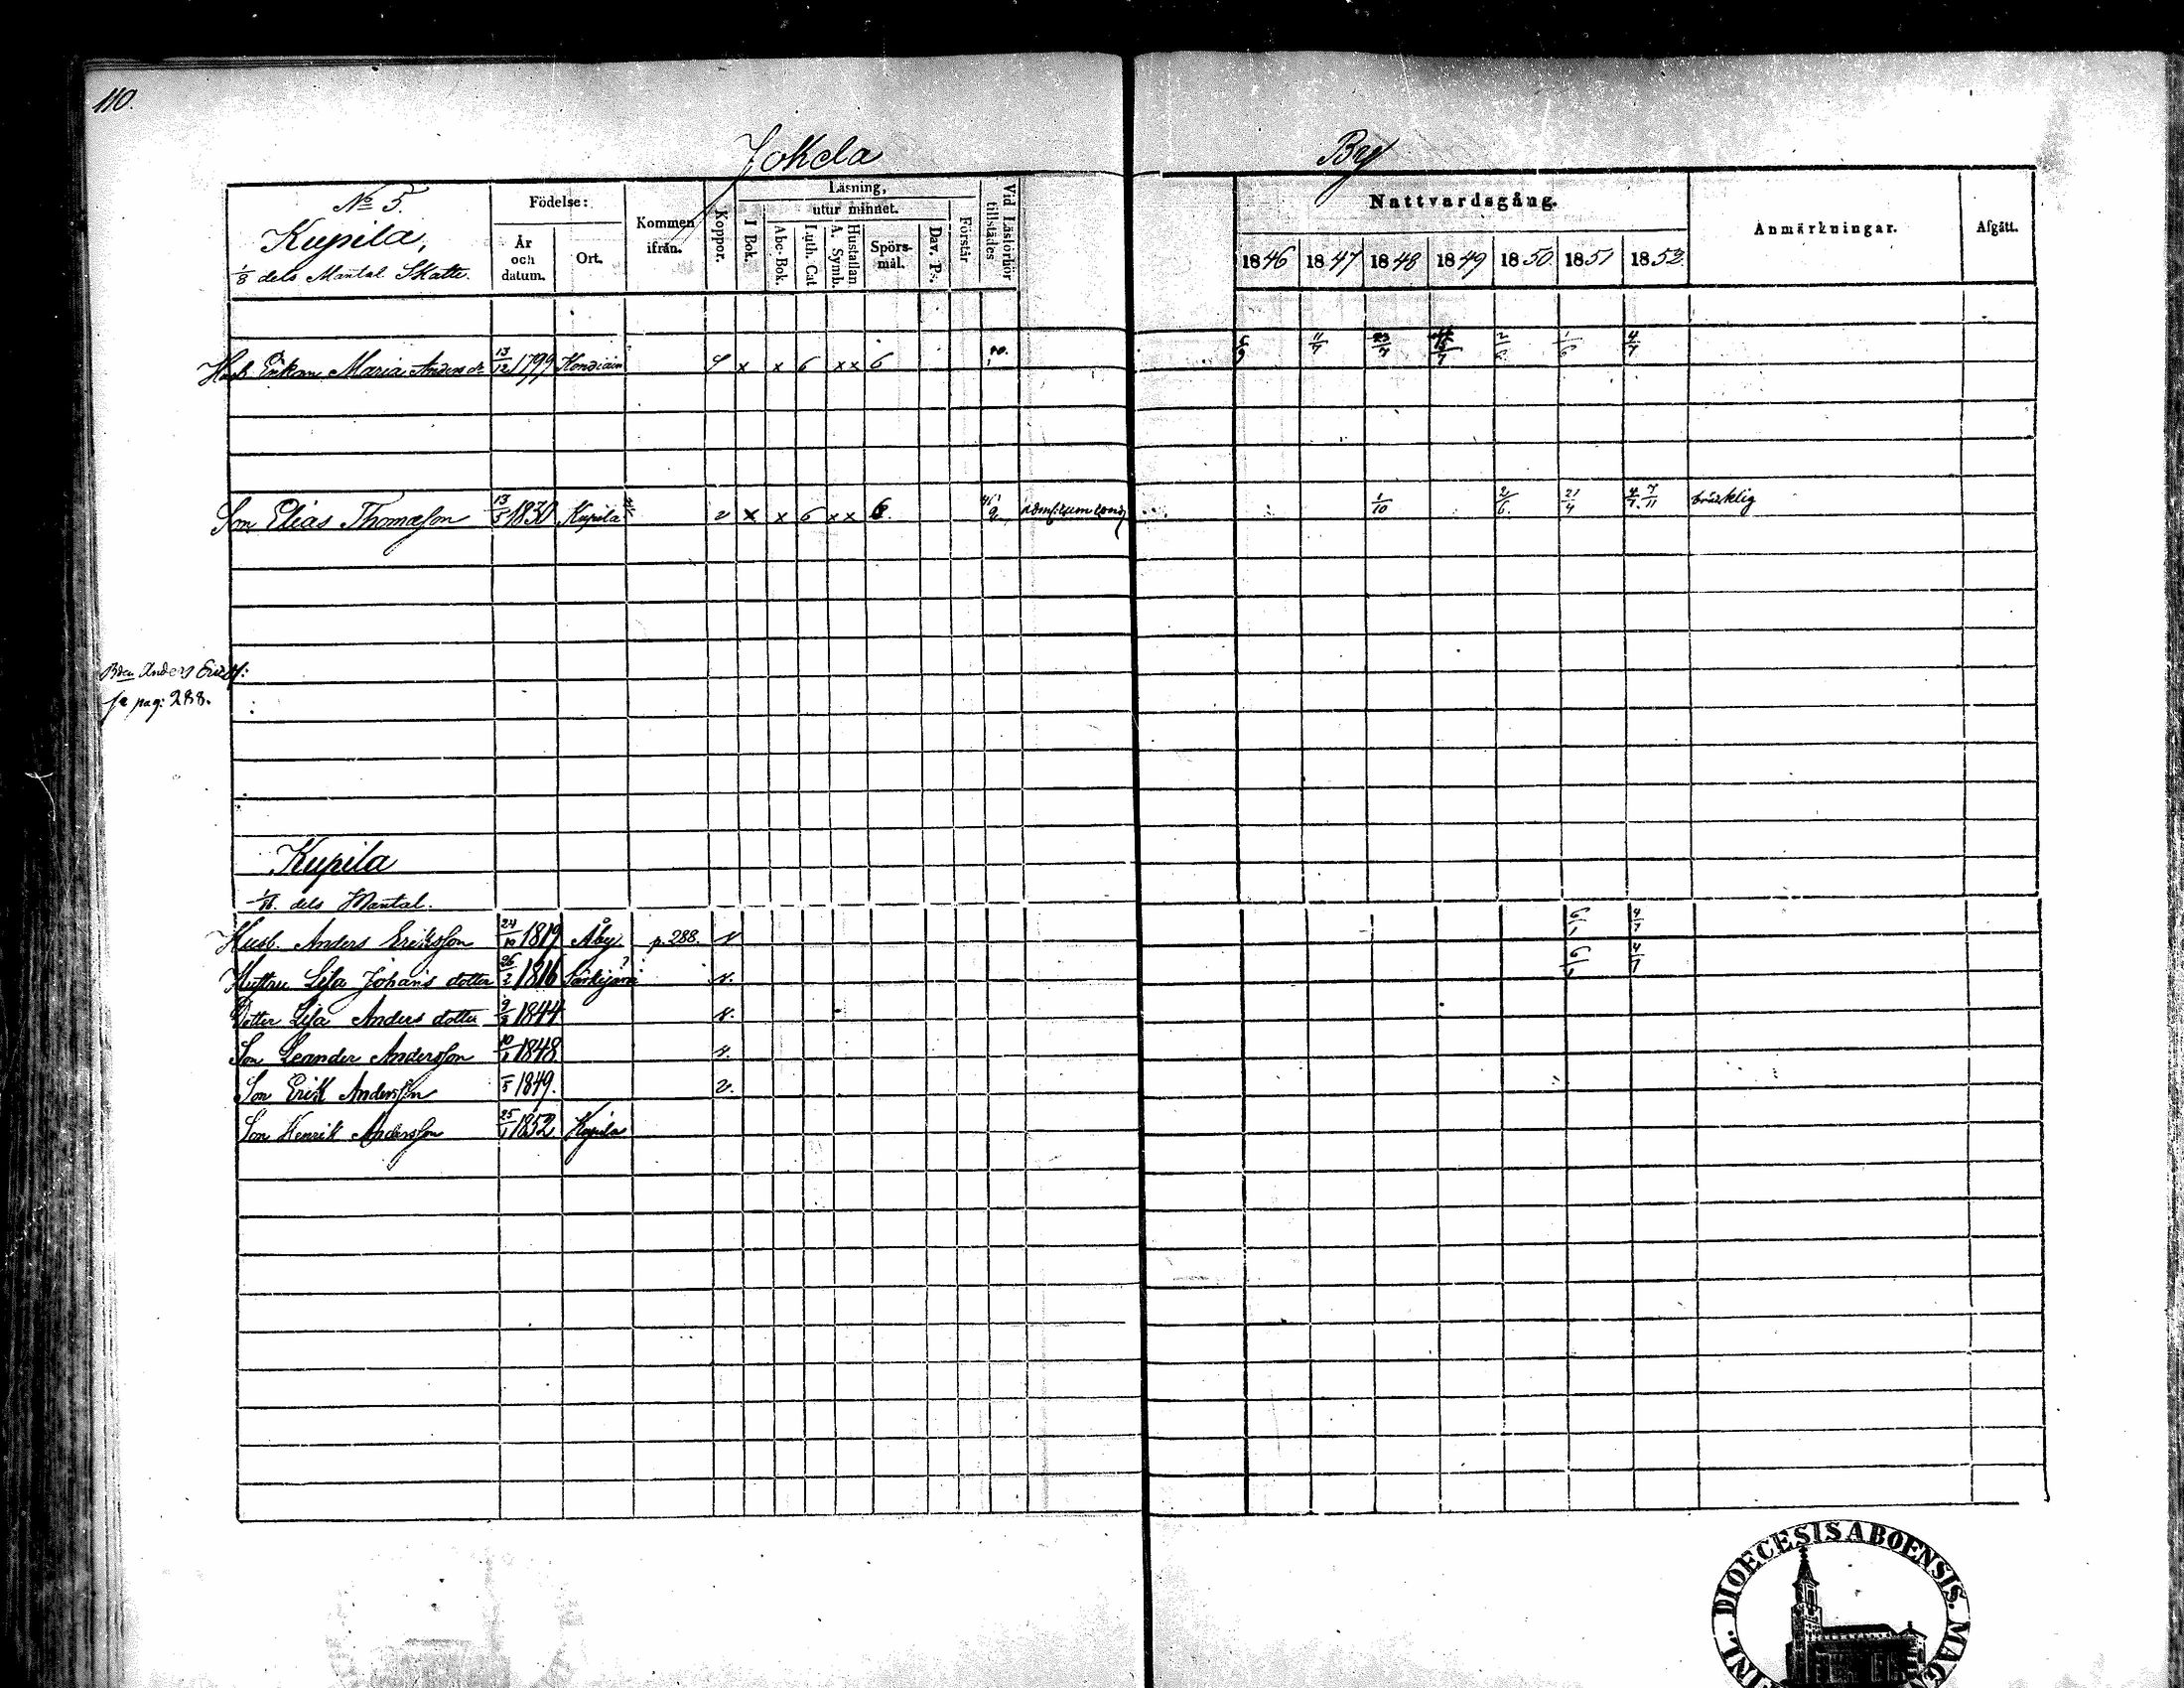 110.
Jokela By
No 5.
Kupila,
1/8 dels Mantal Skatte.
Födelse:
År och datum.
Ort.
Kommen ifrån.
Koppor.
Läsning,
I Bok.
utur minnet.
Abc-Bok.
Luth. Cat
Hustaflan A. Symb.
Spörsmål.
Dav. Ps.
Förstår
Vid Läsförhör tillstädes
Nattvardsgång.
1846 1847 1848 1849 1850 1851 1852.
Anmärkningar.
Afgått.
Enkan Maria Anders dr 13/12 1799 x x 6 x x 6 11/7 2/6 1/6 4/7
Son Elias Thomasson 13/5 1830 Kupila v x x 6 x x 6. 1/10 2/6 21/4 4/7 7/11 bräcklig
Anders
se pag: 288.
Kupila
1/16. dels Mantal.
Husb. Anders Eriksson 24/10 1819 Åby p. 288. v 6/1 4/7
Hustru Lisa Johans dotter 26/2 1816 v. 6/1 4/7
Dotter Lisa Anders dotter 1844 v.
Son Leander Andersson 10/1 1848 v.
Son Erik Andersson 1849. v.
Son Henrik Andersson 25/1 1852 Kupila
DIOECESIS ABOENSIS. MAG
FINL.